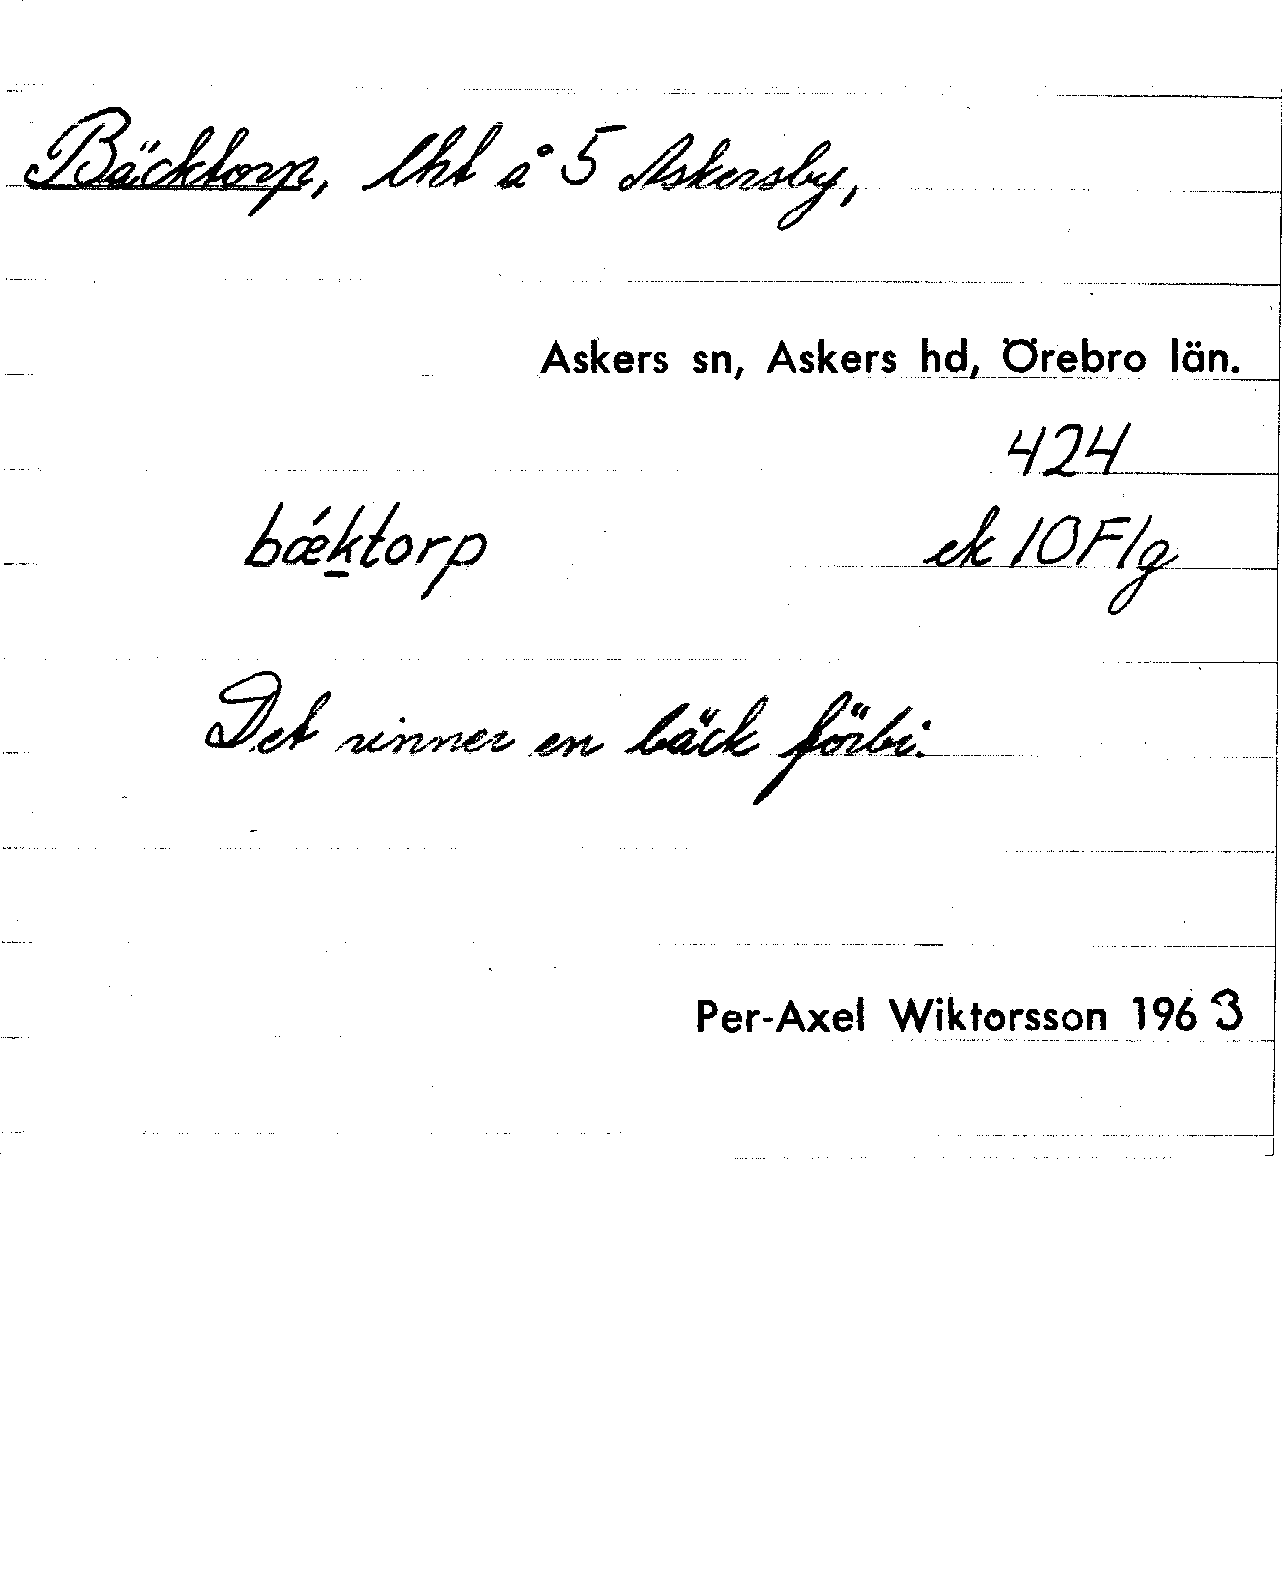 Bäcktorp, lht å 5 Askersby,
Askers sn, Askers hd, Örebro län.
424
bǽktorp ek 10F1g
Det rinner en bäck förbi.
Per-Axel Wiktorsson 1963